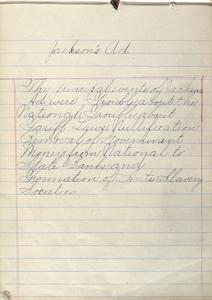 Jackson's Ad
The principal events of Jackson
Ad were Trouble about the
National Trouble about
Tariff Laws Nullification
Removal of Government
Money from National to
State Banks and
Formation of Anti Slavery
Societies